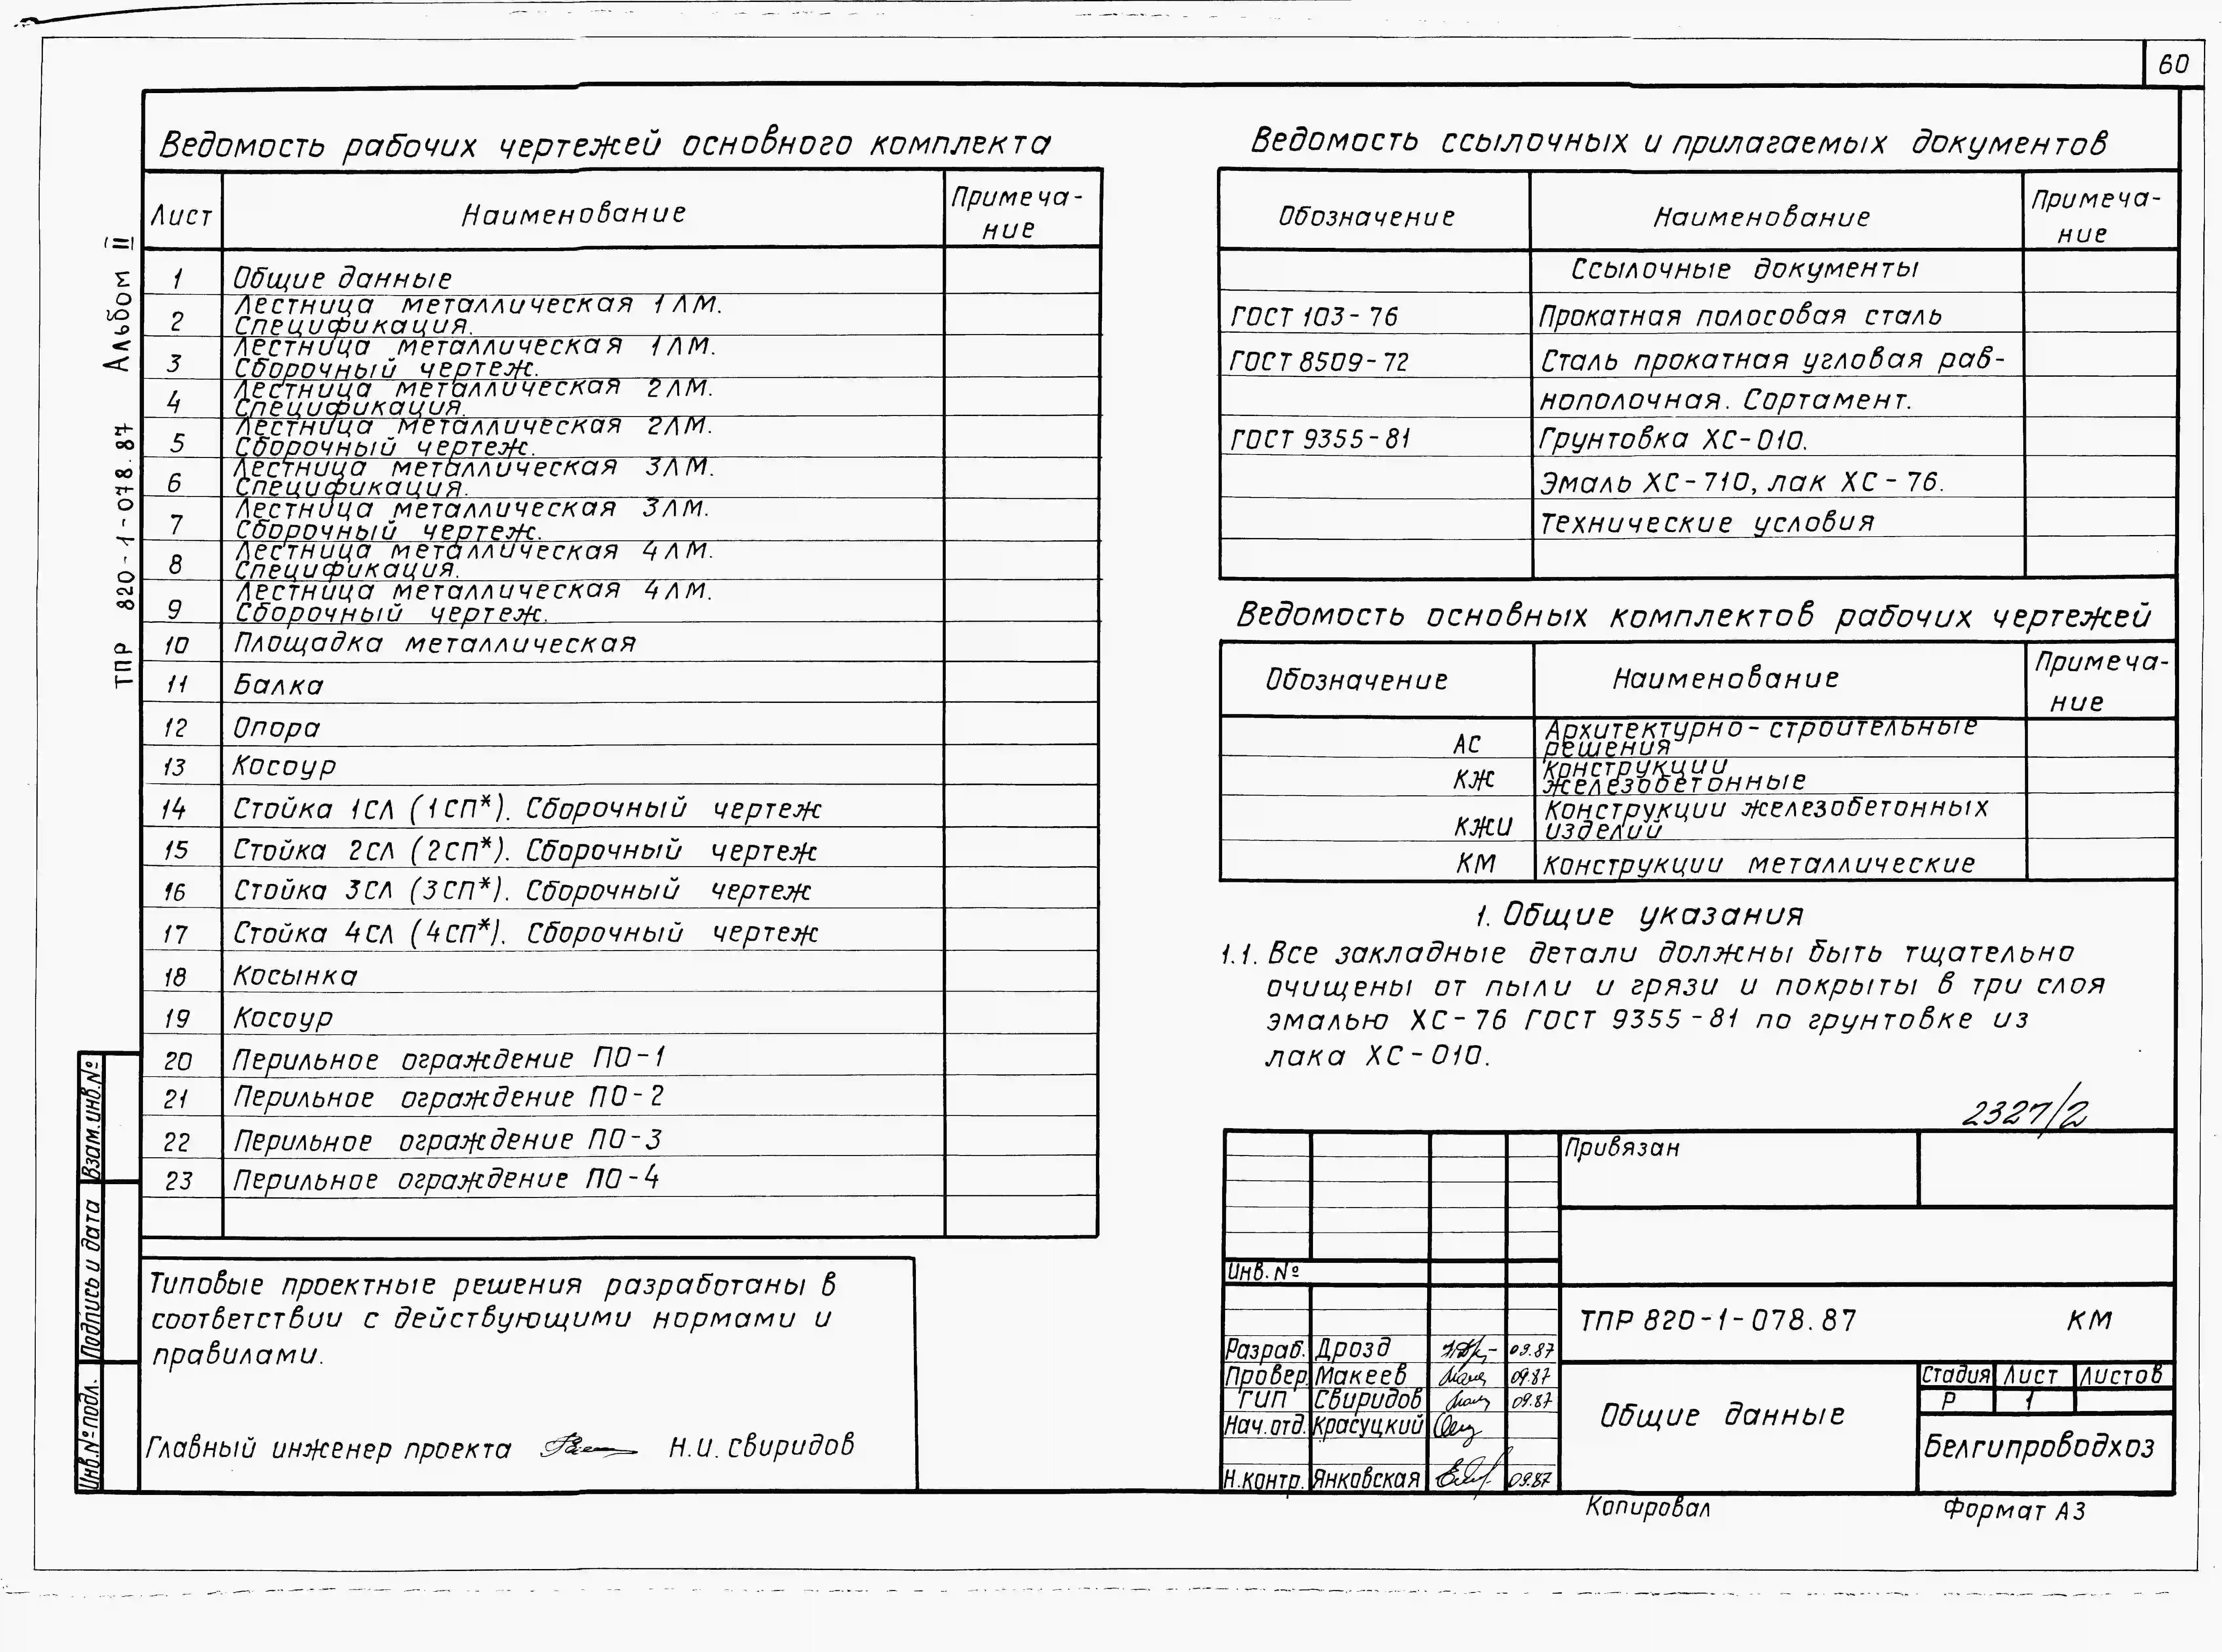 60
Ведомость рабочих чертежей основного комплекта
Лист Наименование Примеча-
ние
1 Общие данные
2 Лестница металлическая 1ЛМ.
Спецификация.
3 Лестница металлическая 1ЛМ.
Сборочный чертеж.
4 Лестница металлическая 2ЛМ.
Спецификация.
5 Лестница металлическая 2ЛМ.
Сборочный чертеж.
6 Лестница металлическая 3ЛМ.
Спецификация.
7 Лестница металлическая 3ЛМ.
Сборочный чертеж.
8 Лестница металлическая 4ЛМ.
Спецификация.
9 Лестница металлическая 4ЛМ.
Сборочный чертеж.
10 Площадка металлическая
11 Балка
12 Опора
13 Косоур
14 Стойка 1СЛ (1СП*). Сборочный чертеж
15 Стойка 2СЛ (2СП*). Сборочный чертеж
16 Стойка 3СЛ (3СП*). Сборочный чертеж
17 Стойка 4СЛ (4СП*). Сборочный чертеж
18 Косынка
19 Косоур
20 Перильное ограждение ПО-1
21 Перильное ограждение ПО-2
22 Перильное ограждение ПО-3
23 Перильное ограждение ПО-4
Типовые проектные решения разработаны в
соответствии с действующими нормами и
правилами.
Главный инженер проекта Н.И. Свиридов
ТПР 820-1-078.87 Альбом II
Взам.инв.№
Подпись и дата
Инв.№ подл.
Ведомость ссылочных и прилагаемых документов
Обозначение Наименование Примеча-
ние
Ссылочные документы
ГОСТ 103-76 Прокатная полосовая сталь
ГОСТ 8509-72 Сталь прокатная угловая рав-
нополочная. Сортамент.
ГОСТ 9355-81 Грунтовка ХС-010.
Эмаль ХС-710, лак ХС-76.
Технические условия
Ведомость основных комплектов рабочих чертежей
Обозначение Наименование Примеча-
ние
АС Архитектурно-строительные
решения
КЖ Конструкции
железобетонные
КЖИ Конструкции железобетонных
изделий
КМ Конструкции металлические
1. Общие указания
1.1. Все закладные детали должны быть тщательно
очищены от пыли и грязи и покрыты в три слоя
эмалью ХС-76 ГОСТ 9355-81 по грунтовке из
лака ХС-010.
2327/2
Привязан
Инв.№
ТПР 820-1-078.87 КМ
Разраб. Дрозд 09.87
Провер. Макеев 09.87
ГИП Свиридов 09.87
Нач.отд. Красуцкий
Н.контр. Янковская 09.87
Общие данные
Стадия Лист Листов
Р 1
Белгипроводхоз
Копировал Формат А3